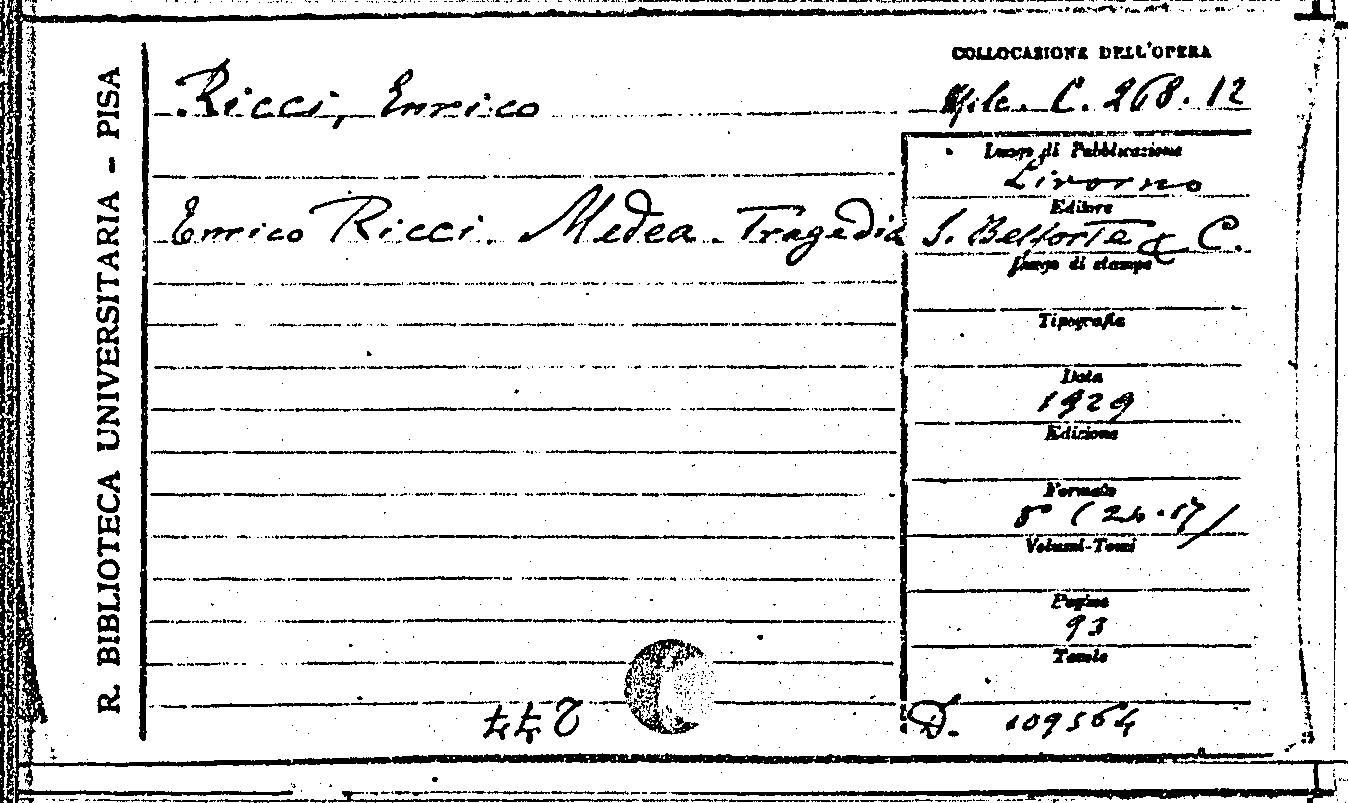 R. BIBLIOTECA UNIVERSITARIA - PISA
COLLOCAZIONE DELL'OPERA
Ricci, Enrico
C. 268. 12
Luogo di Pubblicazione
Livorno
Editore
Enrico Ricci. Medea. Tragedia
S. Belforte & C.
Luogo di stampa
Tipografia
Data
1929
Edizione
Formato
8° (24.17)
Volumi-Tomi
Pagine
93
Tavole
D. 109564